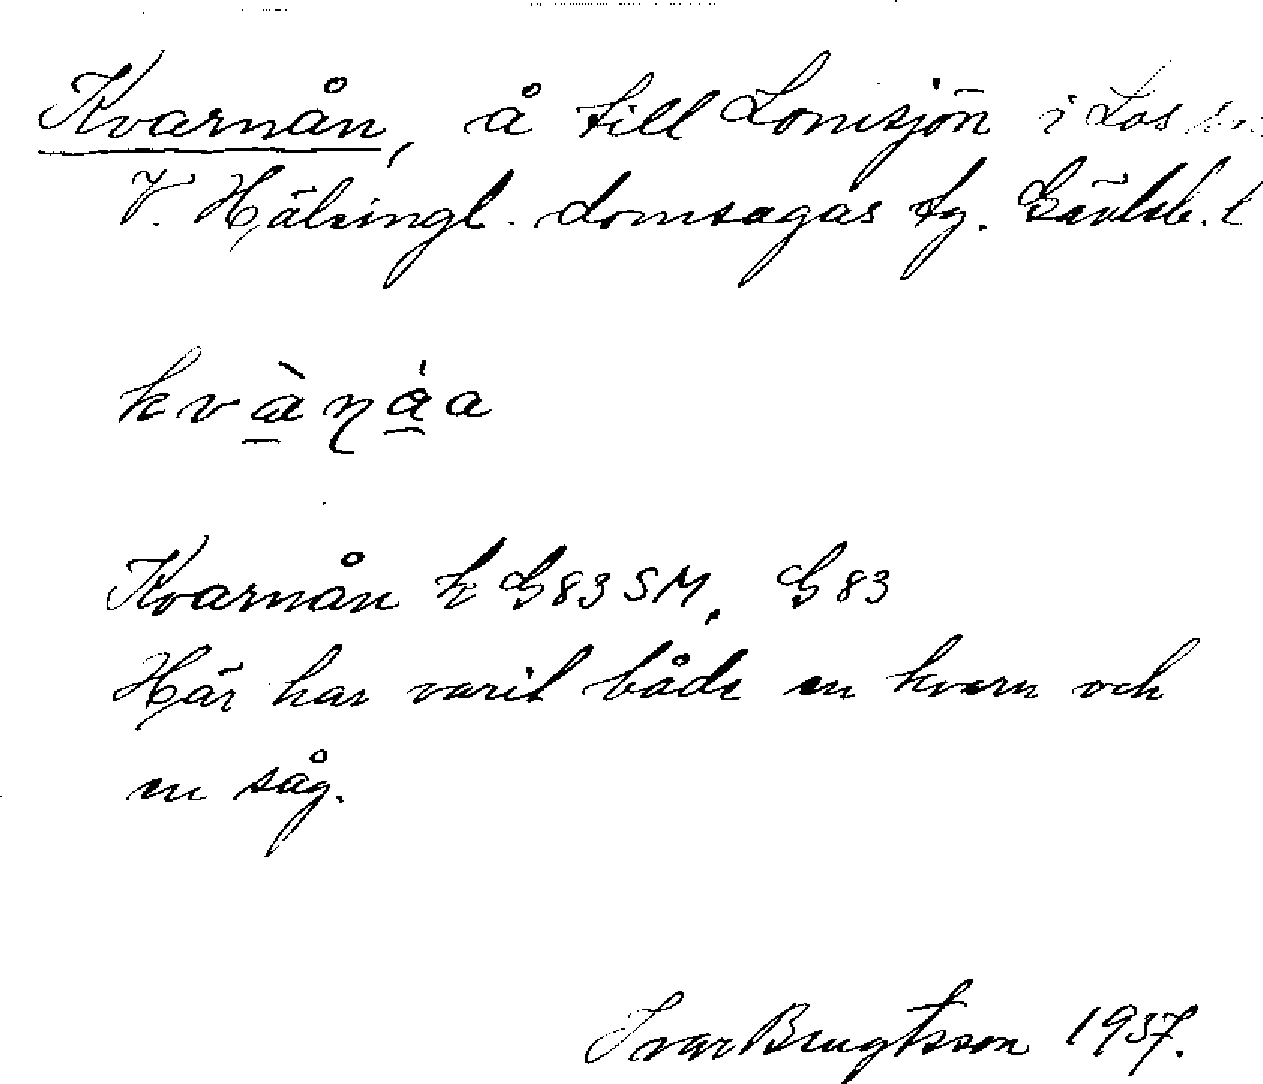 Kvarnån, å till Lomsjön i Los
V. Hälsingl. domsagas tg. Gävleb. l
kvànáa
Kvarnån k G83SM, G83
Här har varit både en kvarn och
en såg.
Ivar Bengtsson 1937.